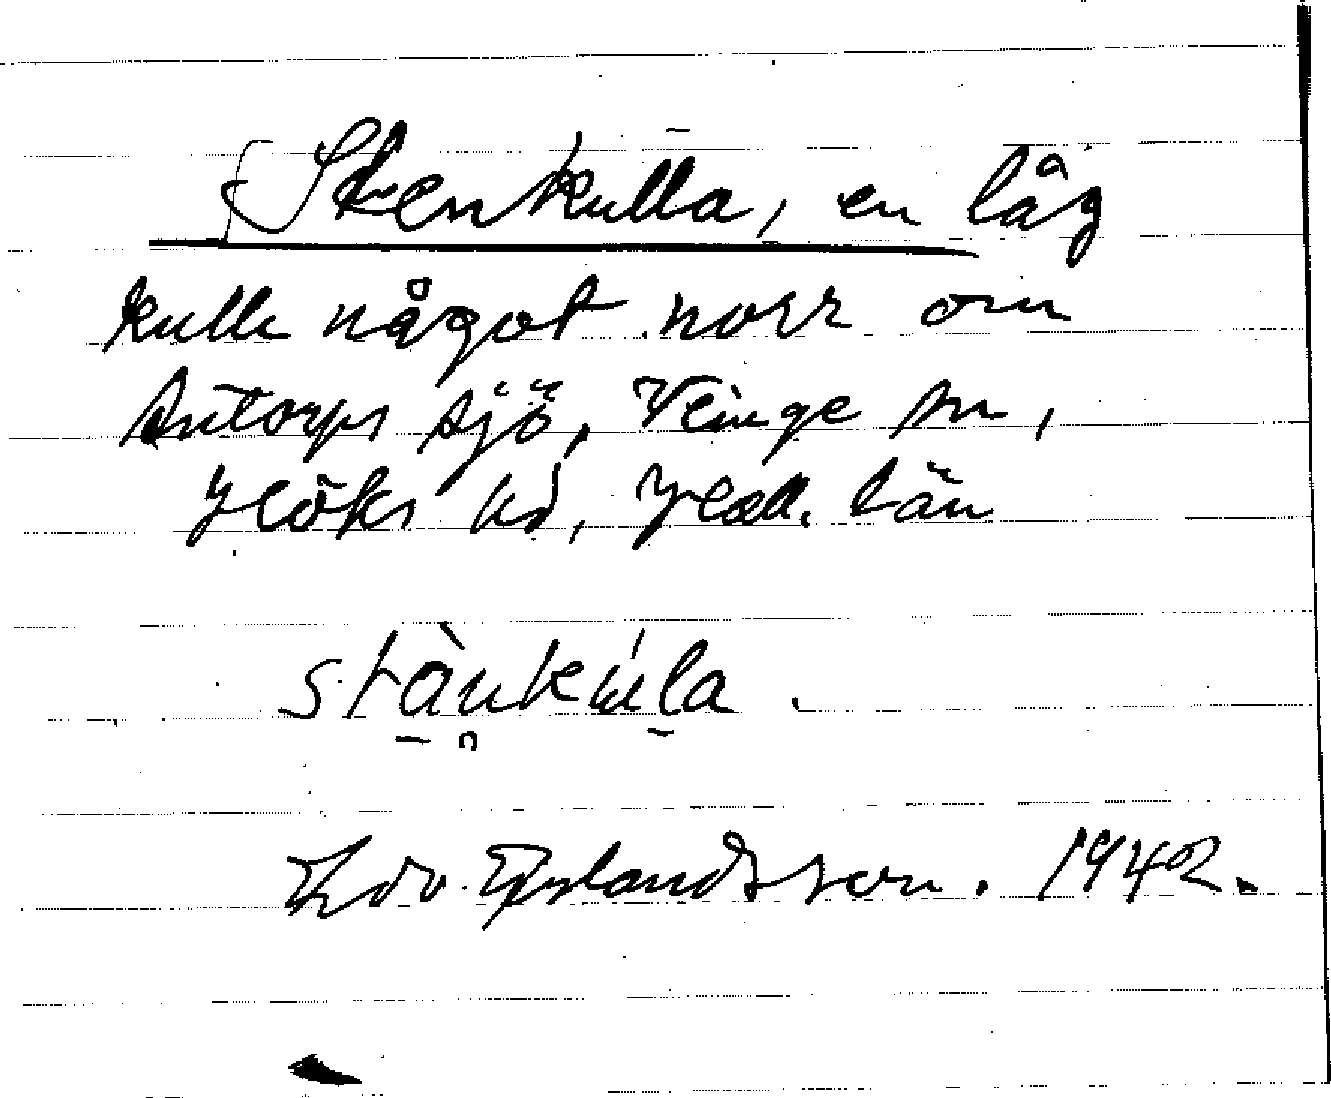 Stenkulla, en låg
kulle något norr om
Antorps sjö, Veinge sn,
Höks hd, Hall. län
stànkúla.
Edv. Erlandsson. 1942.